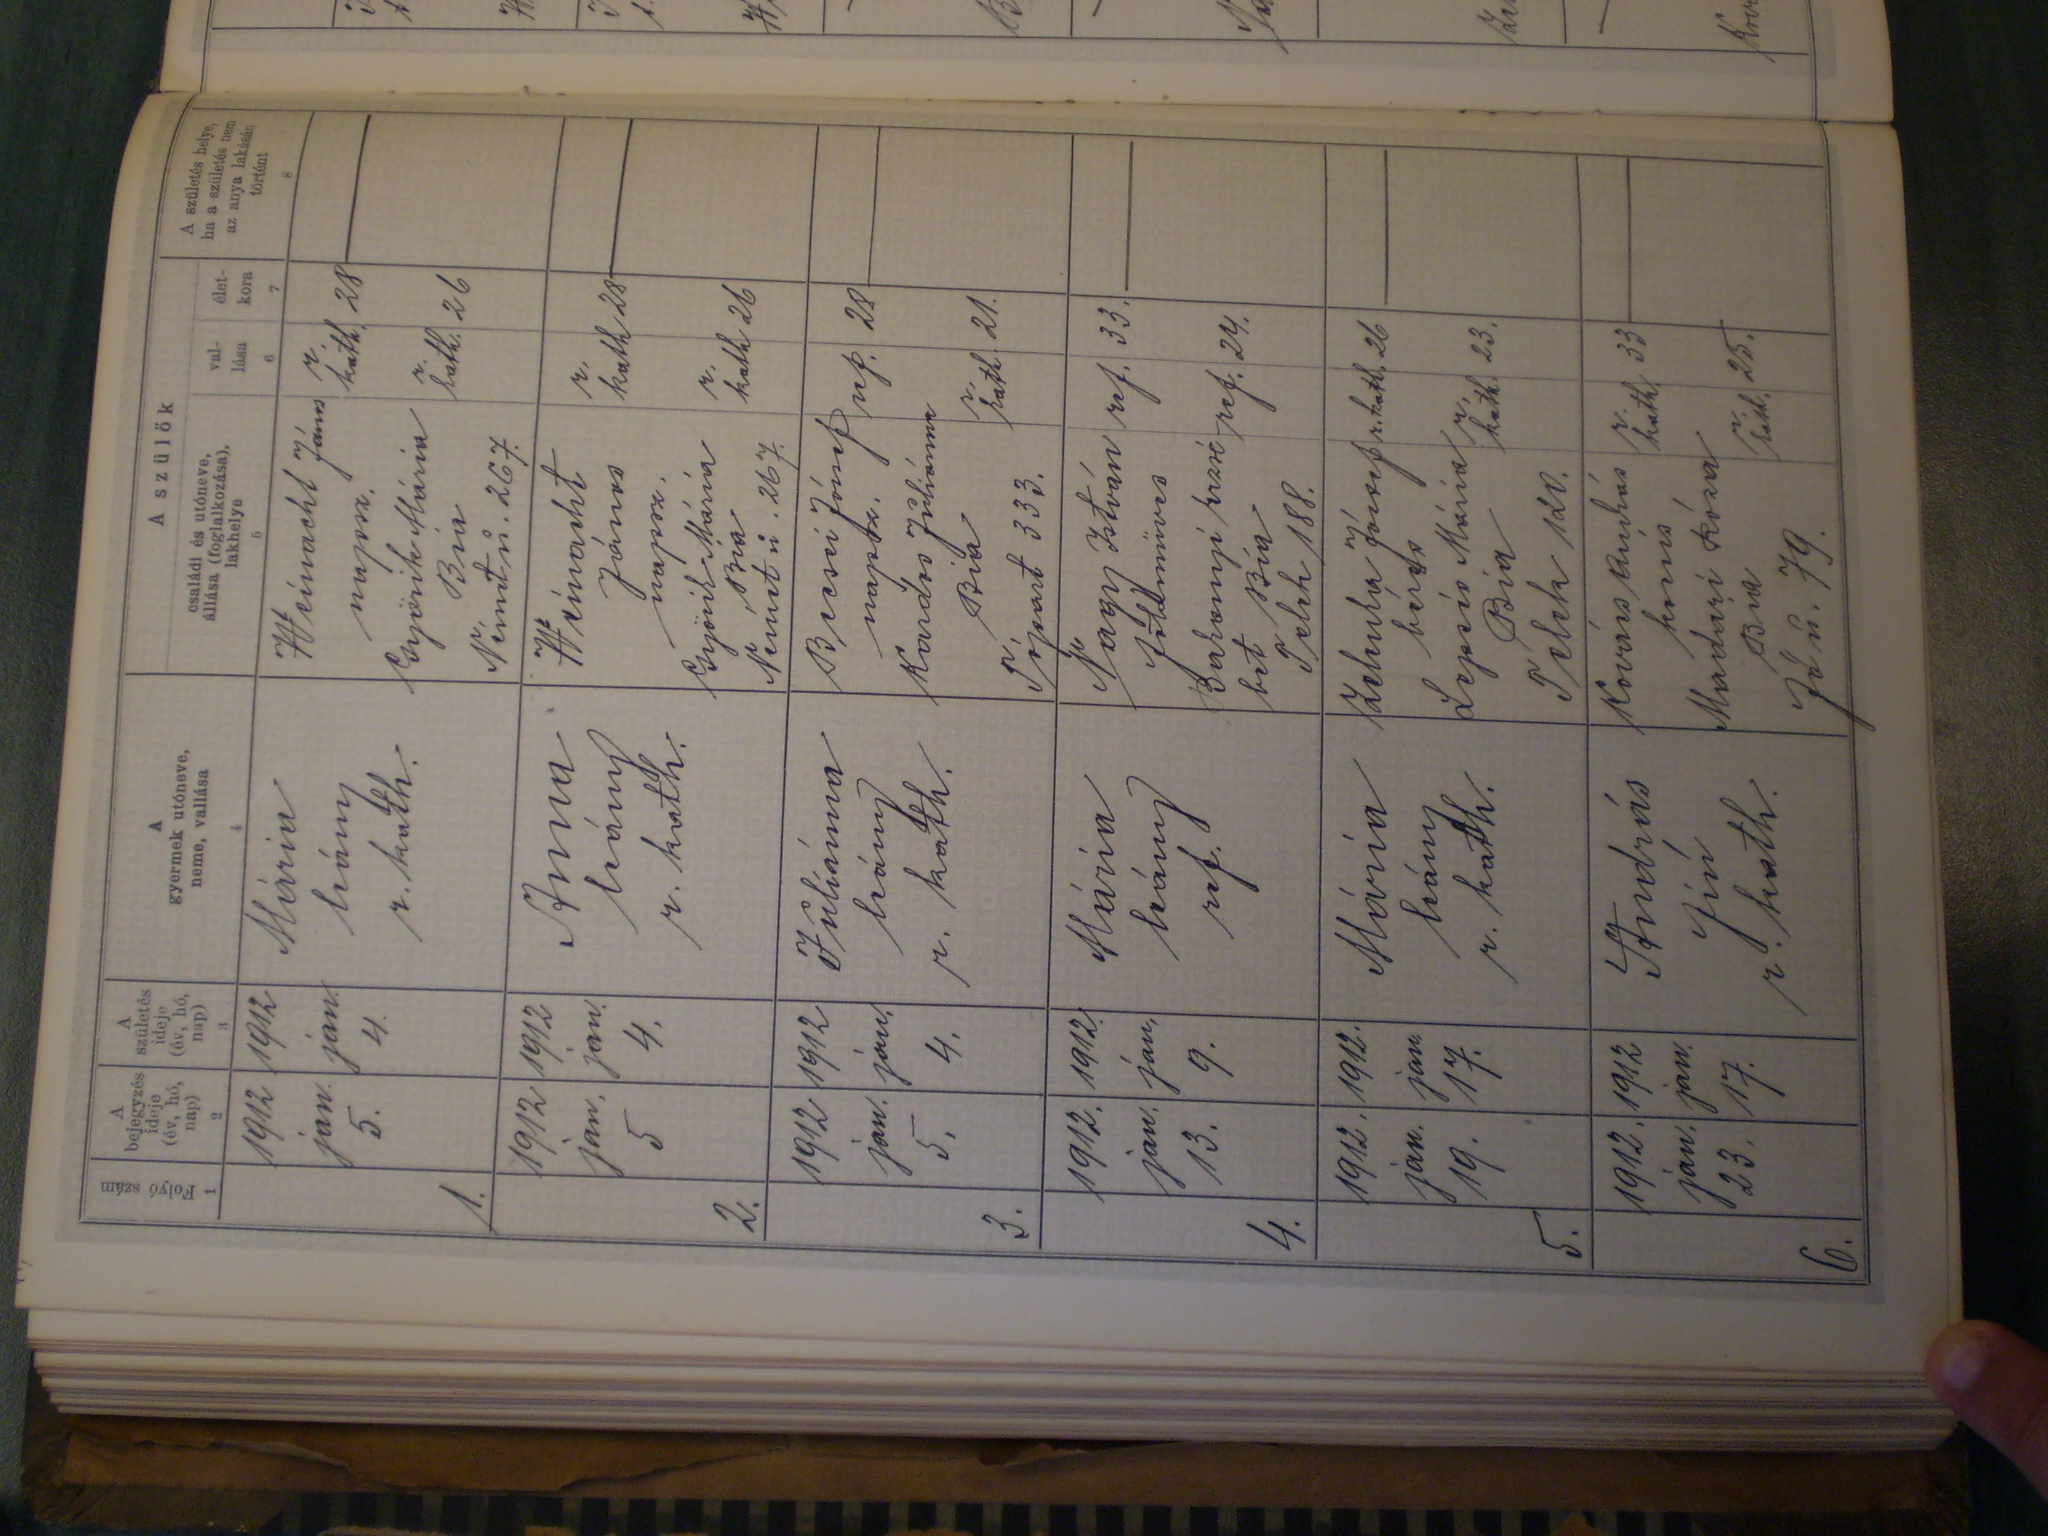 Folyó szám
1
A
bejegyzés
ideje
(év, hó,
nap)
2
A
születés
ideje
(év, hó,
nap)
3
A
gyermek utóneve,
neme, vallása
4
A szülők
családi és utóneve,
állása (foglalkozása),
lakhelye
5
val-
lása
6
élet-
kora
7
A születés helye,
ha a születés nem
az anya lakásán
történt
8
1.
1912
jan.
5.
1912
jan.
4.
Mária
leány
r. kath.
János
napsz.
Mária
Bia
Német u. 267.
r.
kath. 28
r.
kath. 26
2.
1912
jan.
5
1912
jan.
4.
Anna
leány
r. kath.
János
napsz.
Mária
Bia
Német u. 267.
r.
kath 28
r.
kath 26
3.
1912
jan.
5.
1912
jan.
4.
Juliánna
leány
r. kath.
Becsei József
napsz.
Kardos Juliánna
Bia
333.
ref. 28
r.
kath. 21.
4.
1912.
jan.
13.
1912.
jan.
9.
Mária
leány
ref.
Nagy István
földmüves
Baranyi Erzsé
bet Bia
Telek 188.
ref. 33.
ref. 24.
5.
1912.
jan.
19.
1912.
jan.
17.
Mária
leány
r. kath.
József
béres
Mária
Bia
Telek 120.
r. kath. 26
r.
kath. 23.
6.
1912.
jan.
23.
1912
jan.
17.
András
fiú
r. kath.
Kovács András
Róza
Bia
Fő u. 79.
r.
kath. 33
r.
kath. 25.